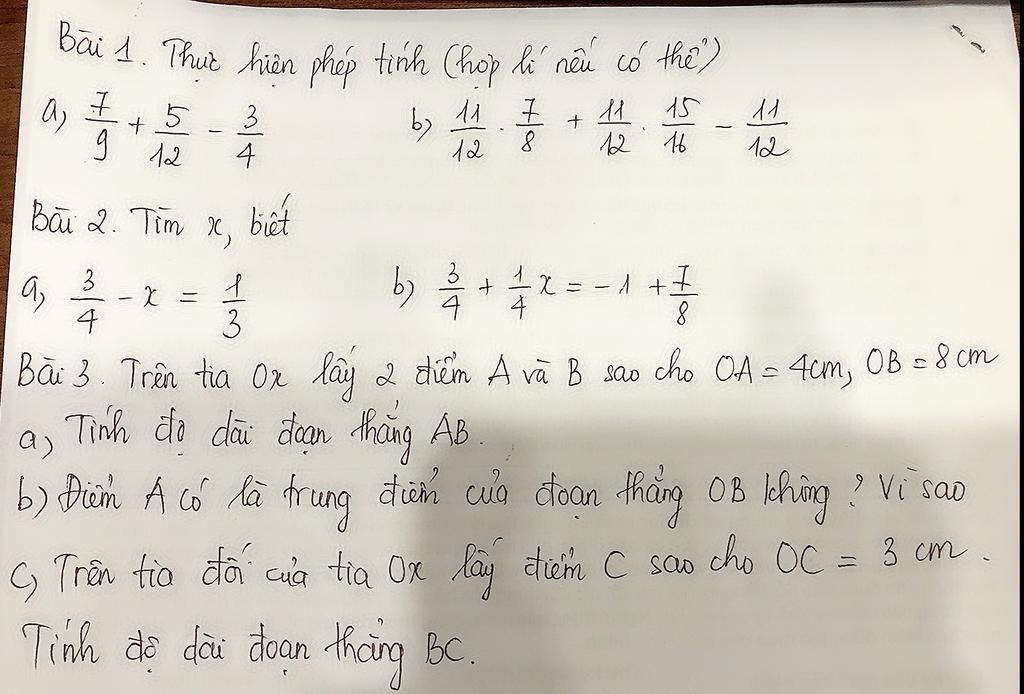 Bài 1. Thực hiện phép tính (hợp lí nếu có thể)
a) 7/9 + 5/12 - 3/4 b) 11/12 . 7/8 + 11/12 . 15/16 - 11/12
Bài 2. Tìm x, biết
a) 3/4 - x = 1/3 b) 3/4 + 1/4 x = - 1 + 7/8
Bài 3. Trên tia Ox lấy 2 điểm A và B sao cho OA = 4cm, OB = 8cm
a) Tính độ dài đoạn thẳng AB.
b) Điểm A có là trung điểm của đoạn thẳng OB không? Vì sao
c) Trên tia đối của tia Ox lấy điểm C sao cho OC = 3 cm.
Tính độ dài đoạn thẳng BC.